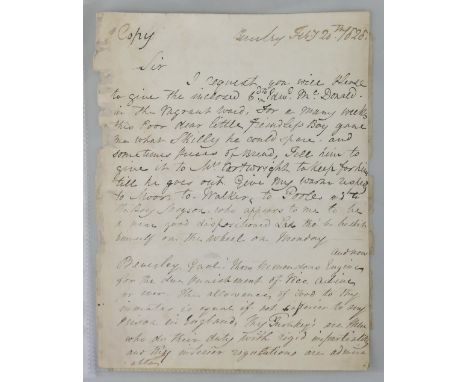 Copy
Feby 20th /1828.
Sir
I request you will please
to give the inclosed 6d to Edwd. Mc. Donald
in the Vagrant Ward, For a many weeks
this Poor dear little friendless Boy gave
me what Skilly he could spare. and
sometimes pieces of Bread, Tell him to
give it to Mr Cartwright to keep for him
till he goes out Give my warm
to Moor to Walker, to Poole
who appears to me to be
a near good dispositioned Lad tho' he
himself on the Wheel on Monday
and now
Beverley Gaol. Thou tremendous Engine
for the due punishment of Vice, adieu
for ever. Thy allowance of food to thy
inmates is equal if not superior to any
Prison in England, Thy Turnkeys are Men
who do their duty with rigid impartiality
and thy interior regulations are admir